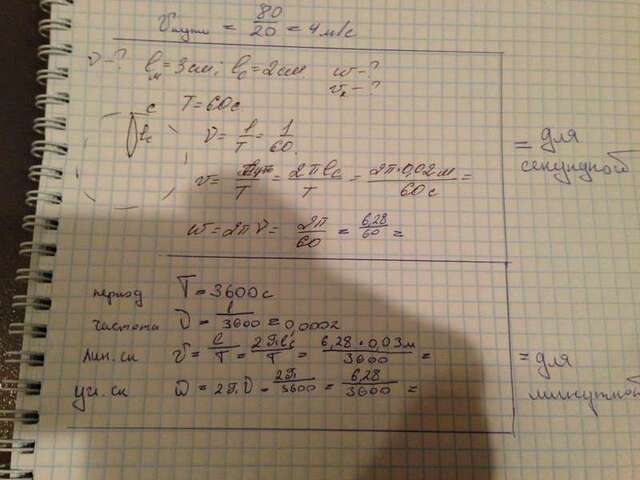 υпути = 80/20 = 4 м/с
ν-? lм = 3 см; lс = 2 см ω-?
υ-?
T = 60с
ν = 1/T = 1/60
υ = /T = 2πlс/T = 2π·0,02м/60с =
ω = 2πν = 2π/60 = 6,28/60 =
= для секундного
период T = 3600 с
частота ν = 1/3600 = 0,0002
лин. ск υ = l/T = 2πl/T = 6,28·0,03м/3600 =
уг. ск ω = 2πν = 2π/3600 = 6,28/3600 =
= для минутной